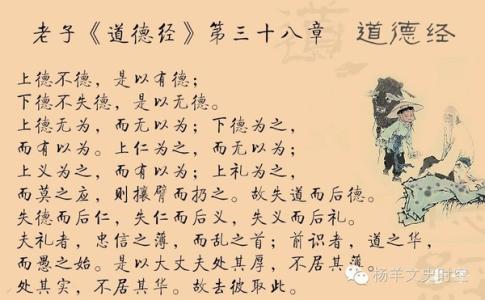 老子《道德经》第三十八章
道德经
上德不德，是以有德；
下德不失德，是以无德。
上德无为，而无以为；下德为之，
而有以为。上仁为之，而无以为；
上义为之，而有以为；上礼为之，
而莫之应，则攘臂而扔之。故失道而后德。
失德而后仁，失仁而后义，失义而后礼。
夫礼者，忠信之薄，而乱之首；前识者，道之华，
而愚之始。是以大丈夫处其厚，不居其薄。
处其实，不居其华。故去彼取此。
杨羊文史时空